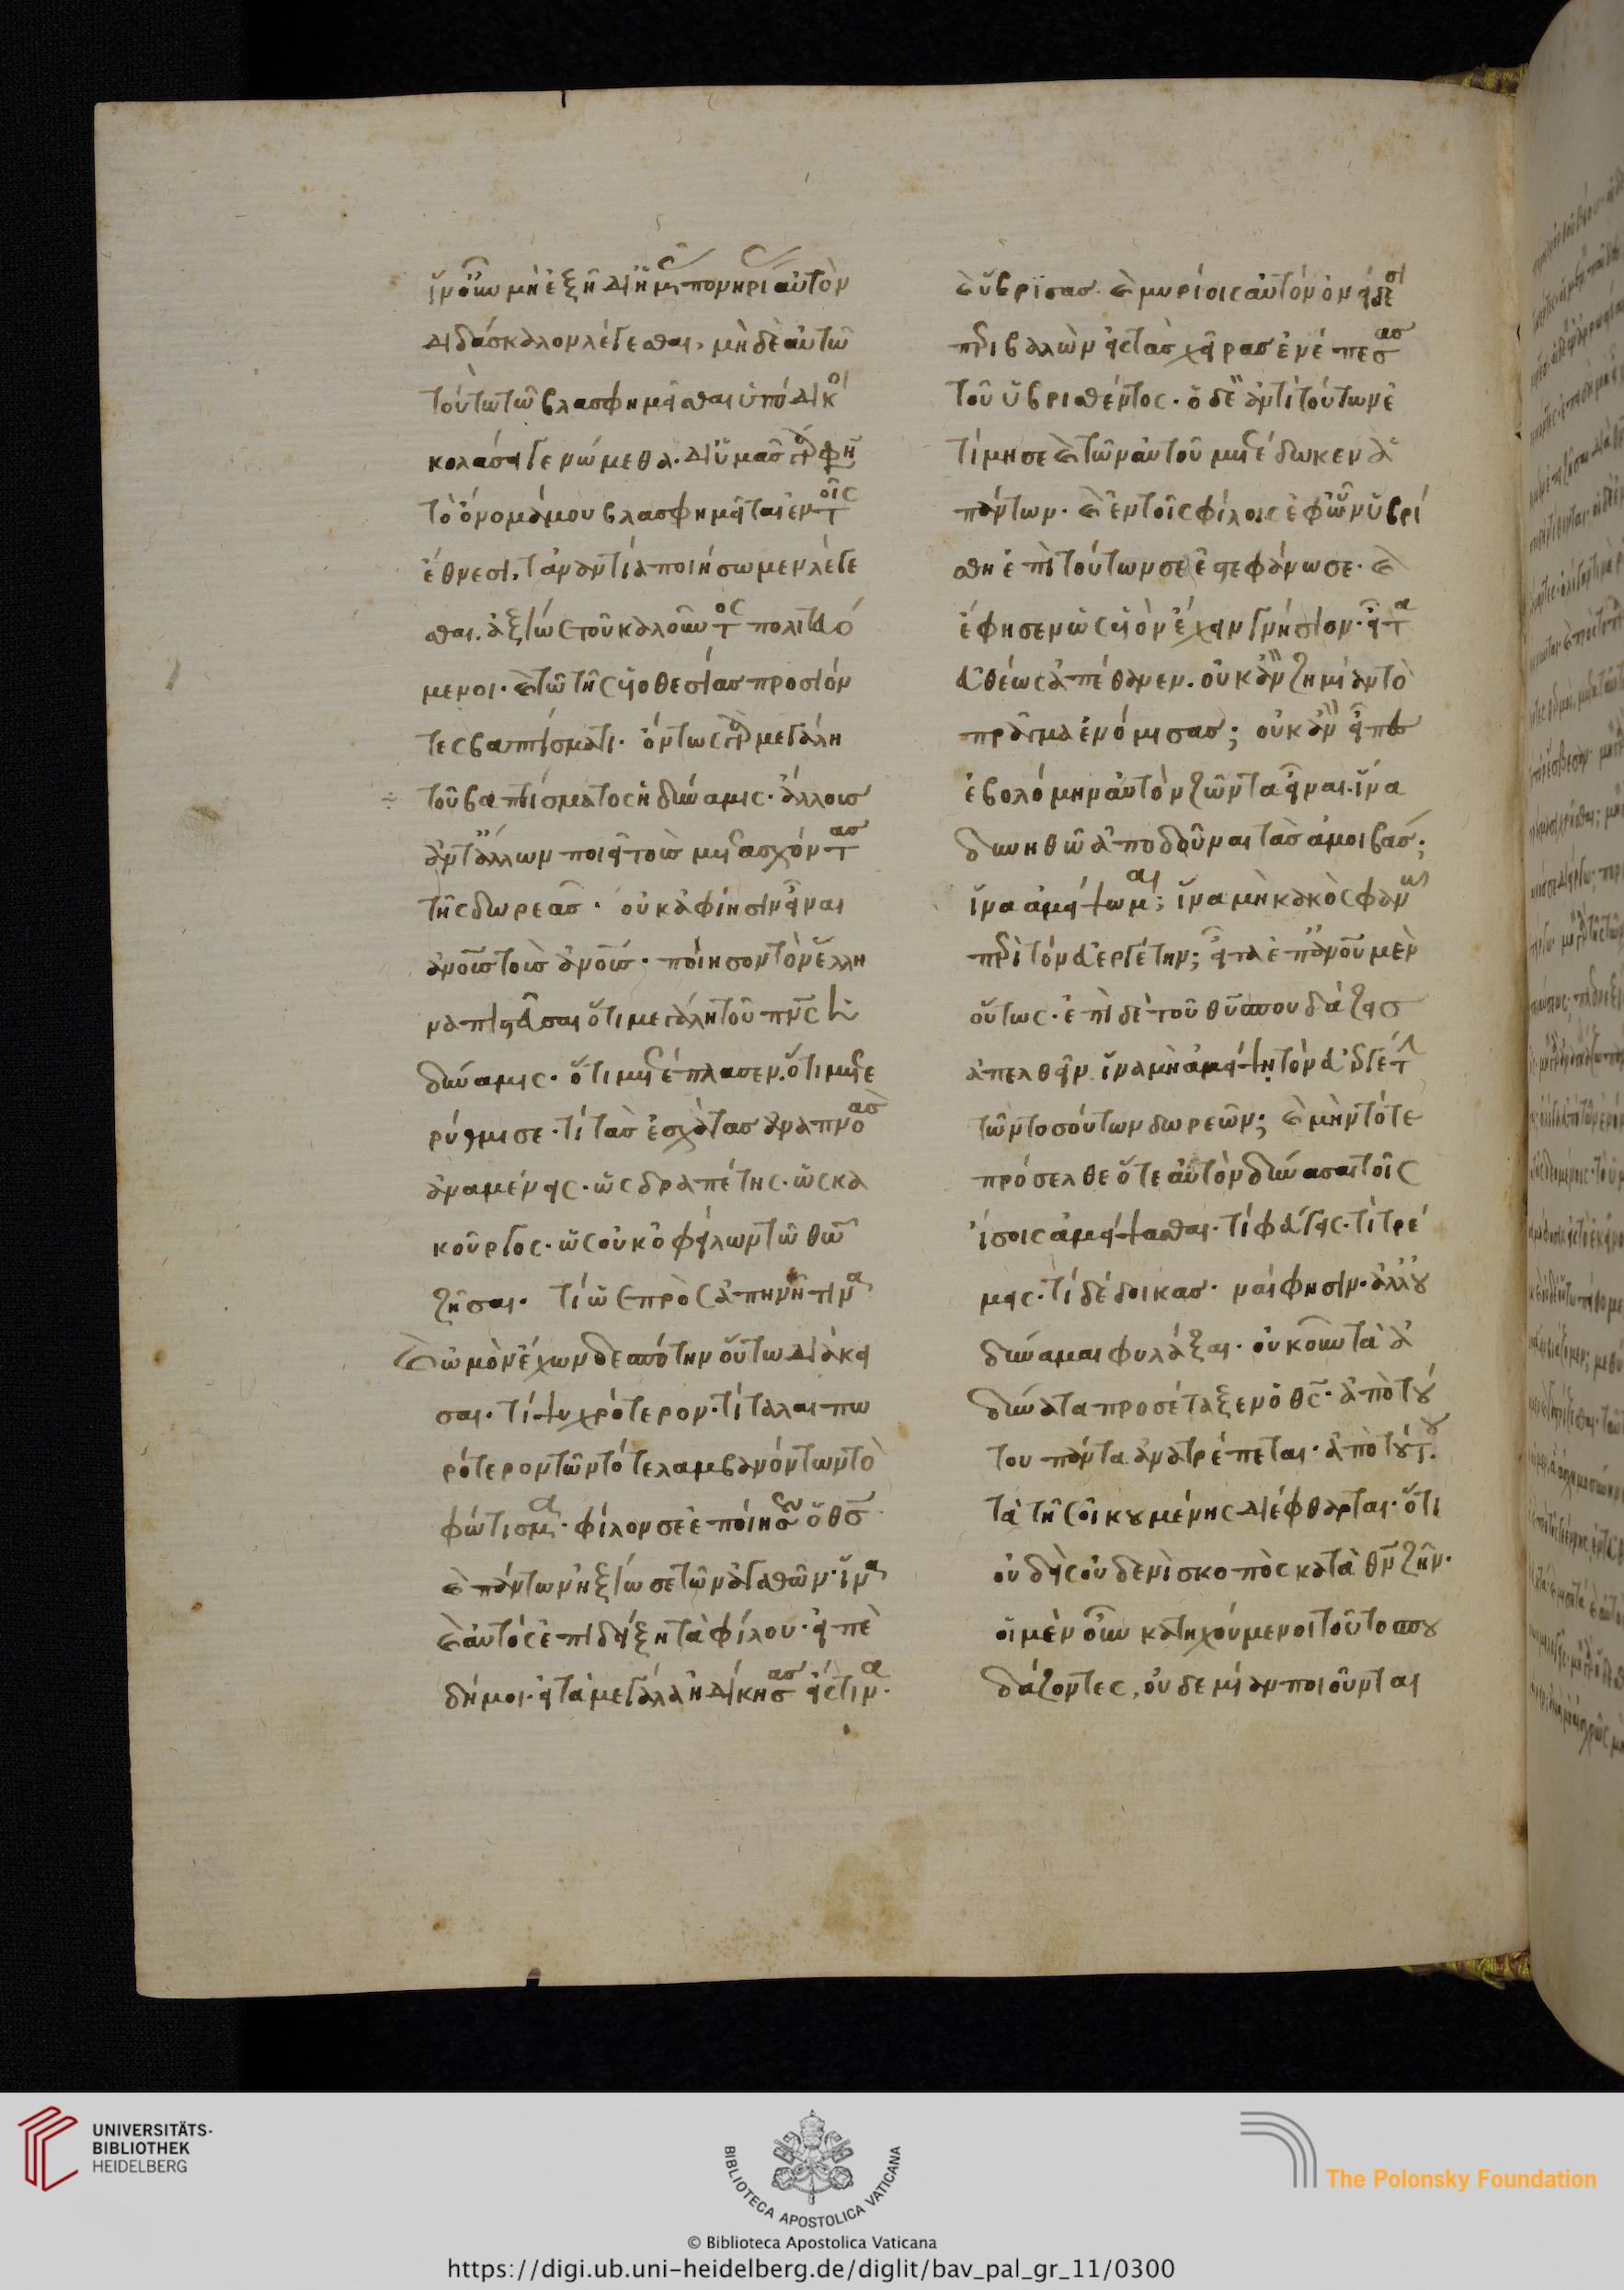 ἵν' οὖν μὴ ἐξῆ δι' ἡμῶν πονηρίας αὐτὸν
διδάσκαλον λέγεσθαι, μηδὲ αὐτῶ
τούτω τῶ βλασφημεῖσθαι ὑπόδικοι
κολάσει γενώμεθα. δι' ὑμᾶς γάρ φησι
τὸ ὄνομά μου βλασφημεῖται ἐν τοῖς
ἔθνεσι. τἀναντία ποιήσωμεν λέγε
σθαι. ἀξίως τοῦ καλοῦντος πολιτευό
μενοι· καὶ τῶ τῆς υἱοθεσίας προσιόν
τες βαπτίσματι· ὄντως γὰρ μεγάλη
τοῦ βαπτίσματος ἡ δύναμις· ἄλλους
ἀντ' ἄλλων ποιεῖ τοὺς μετασχόντας
τῆς δωρεᾶς· οὐκ ἀφίησιν εἶναι
ἀνους τοὺς ἀνους· ποίησον τὸν ἕλλη
να πιστεῦσαι ὅτι μεγάλη τοῦ πνς ἡ
δύναμις· ὅτι μετέπλασεν. ὅτι μετε
ρύθμισε· τί τὰς ἐσχάτας ἀναπνοὰς
ἀναμένεις· ὡς δραπέτης· ὡς κα
κοῦργος· ὡς οὐκ ὀφείλων τῶ θω
ζῆσαι· τί ὡς πρὸς ἀπηνῆ τινα
καὶ ὠμὸν ἔχων δεσπότην οὕτω διάκει
σαι· τί ψυχρότερον· τί ταλαιπω
ρότερον τῶν τότε λαμβανόντων τὸ
φώτισμα· φίλον σε ἐποίησεν ὁ θς
καὶ πάντων ἠξίωσε τῶν ἀγαθῶν· ἵνα
καὶ αὐτὸς ἐπιδείξη τὰ φίλου· εἰπὲ
δή μοι· εἰ τὰ μεγάλα ἠδίκησας εἴς τινα·
καὶ ὕβρισας· καὶ μυρίοις αὐτὸν ὀνείδεσι
περιβαλὼν εἰς τὰς χεῖρας ἐνέπεσας
τοῦ ὑβρισθέντος· ὁ δὲ ἀντὶ τούτων ἐ
τίμησε καὶ τῶν αὐτοῦ μετέδωκεν ἁ
πάντων· καὶ ἐν τοῖς φίλοις ἐφ' ὧν ὑβρί
σθη ἐπὶ τούτων σε ἐστεφάνωσε· καὶ
ἔφησεν ὡς υἱὸν ἔχειν γνήσιον· εἶτα
εὐθέως ἀπέθανεν. οὐκ ἂν ζημίαν τὸ
πρᾶγμα ἐνόμισας; οὐκ ἂν εἶπες
ἐβουλόμην αὐτὸν ζῶντα εἶναι. ἵνα
δυνηθῶ ἀποδοῦναι τὰς ἀμοιβάς;
ἵνα ἀμείψωμαι; ἵνα μὴ κακὸς φανῶ
περὶ τὸν εὐεργέτην; εἶτα ἐπ' ἀνου μὲν
οὕτως· ἐπὶ δὲ τοῦ θυ σπουδάζεις
ἀπελθεῖν. ἵνα μὴ ἀμείψη τὸν εὐεργέτην
τῶν τοσούτων δωρεῶν; καὶ μὴν τότε
πρόσελθε ὅτε αὐτὸν δύνασαι τοῖς
ἴσοις ἀμείψασθαι· τί φεύγεις· τί τρέ
μεις· τί δέδοικας· ναί φησιν· ἀλλ' οὐ
δύναμαι φυλάξαι· οὐκοῦν τὰ ἀ
δύνατα προσέταξεν ὁ θς· ἀπὸ τού
του πάντα ἀνατρέπεται· ἀπὸ τούτου
τὰ τῆς οἰκουμένης διέφθαρται· ὅτι
οὐδεὶς οὐδενὶ σκοπὸς κατὰ θν ζῆν·
οἱ μὲν οὖν κατηχούμενοι τοῦτο σπου
δάζοντες, οὐδεμίαν ποιοῦνται
UNIVERSITÄTS-
BIBLIOTHEK
HEIDELBERG
BIBLIOTECA APOSTOLICA VATICANA
© Biblioteca Apostolica Vaticana
The Polonsky Foundation
https://digi.ub.uni-heidelberg.de/diglit/bav_pal_gr_11/0300